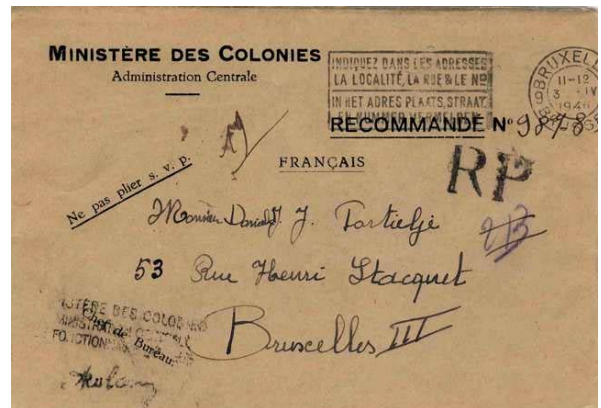 MINISTÈRE DES COLONIES
Administration Centrale
INDIQUEZ DANS LES ADRESSES
LA LOCALITÉ, LA RUE & LE NO
IN HET ADRES PLAATS, STRAAT
EN NUMMER VERMELDEN
BRUXELLES
11-12
3 IV
RECOMMANDÉ No 9878
RP
FRANÇAIS
Ne pas plier s. v. p.
Monsieur J. Tortielje
53 Rue Henri Stacquet
Bruxelles III
MINISTÈRE DES COLONIES
Chef de Bureau